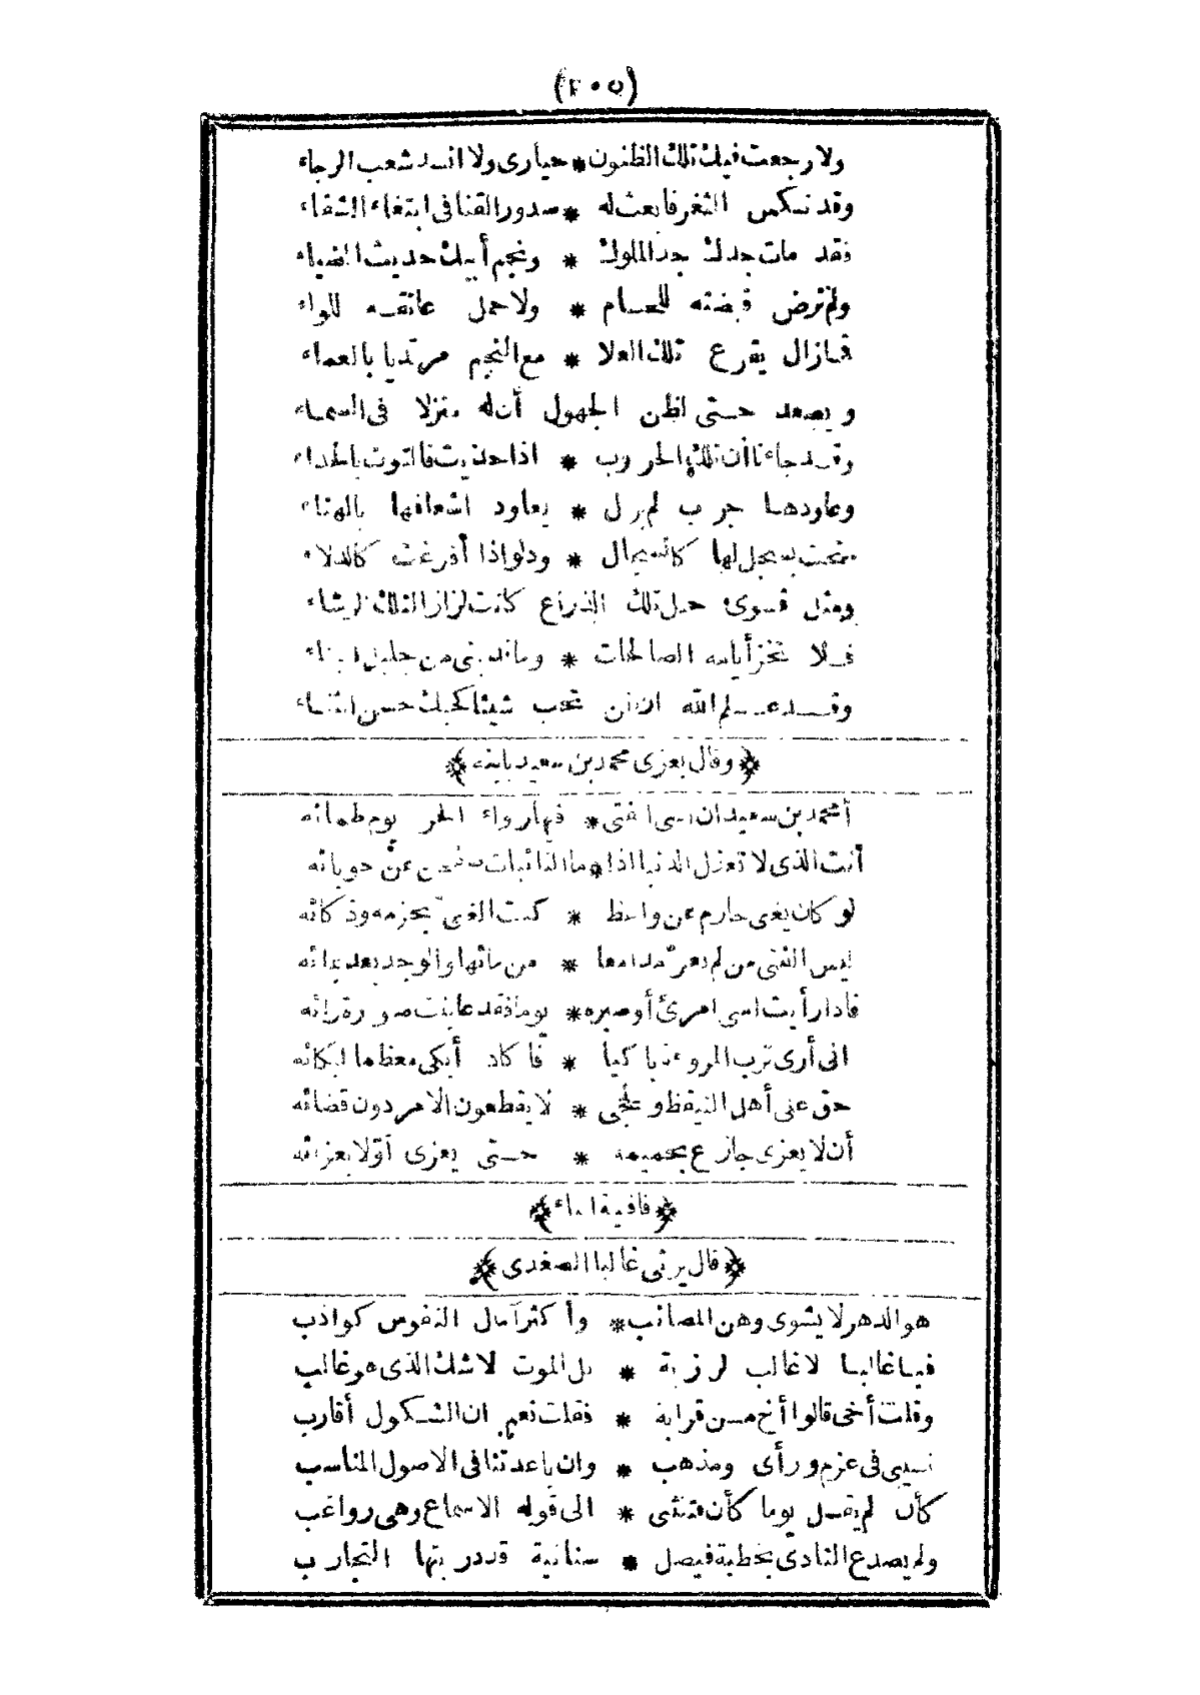 (٢٠٥)
ولا رجعت فيك تلك الظنون * حيارى ولا انسد شعب الرجاء
وقد نكس الثغر فابعث له * صدور القنا في ابتغاء الشفاء
فقد مات جدك جد الملوك * ونجم أبيك حديث الضياء
ولم ترض قبضته للحسام * ولا حمل عاتقه للواء
فما زال يقرع تلك العلا * مع النجم مرتديا بالعماء
ويصعد حتى لظن الجهول أن له منزلا في السماء
وقد جاءنا أن تلك الحروب * اذا حديت فالتوت بالحداء
وعاودها جرب لم يزل * يعاود اشعافها بالهناء
تمتحت بسجل لها كالسجال * ودلو اذا أفرغت كالدلاء
ومثل قوى حبل تلك الذراع كانت لزاز التلك الرشاء
فلا تخز أيامه الصالحات * وما قد بنى من جليل البناء
وقد علم الله ان لن تحب شيئا كحبك حسن الثناء
﴿وقال يعزى محمد بن سعيد بابنه﴾
أمحمد بن سعيد ان اسى الفتى * فيها رواء الحر يوم ظمائه
أنت الذي لا تعزل الدنيا اذا * ما النائبات صفحن عن حوبائه
لو كان يغنى حازم عن واعظ * كنت الغنى بحزمه وذكائه
ليس الفتى من لم يعر مدامعا * من مائها والوجد بعد بمائه
فاذا رأيت اسى امرئ أو صبره * يوما فقد عاينت صورة رائه
انى أرى ترب المروءة باكيا * فأكاد أبكى معظما لبكائه
حق على أهل التيقظ والحجى * لا يقطعون الامر دون قضائه
أن لا يعزى جازع بحميمه * حتى يعزى أولا بعزائه
﴿قافية الباء﴾
﴿قال يرثى غالبا الصغدى﴾
هو الدهر لا يشوى وهن المصائب * وأكثر آمال النفوس كواذب
فيا غالبا لا غالب لرزية * بل الموت لا شك الذى هو غالب
وقلت أخى قالوا أخ من قرابة * فقلت نعم ان الشكول أقارب
نسيبى فى عزم ورأى ومذهب * وان باعدتنا فى الاصول المناسب
كأن لم يقل يوما كأن فتنثنى * الى قوله الاسماع وهى رواغب
ولم يصدع النادى بخطبة فيصل * سنانية قد دربتها التجارب